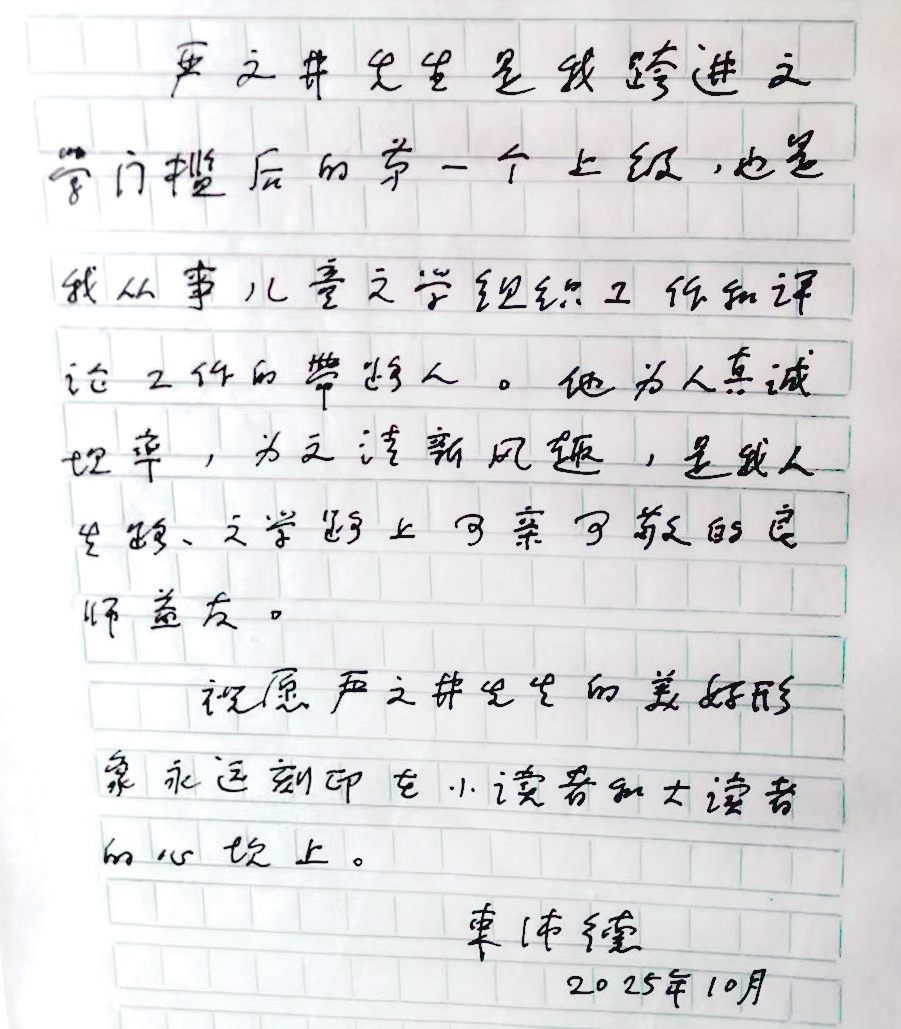 严文井先生是我跨进文
学门槛后的第一个上级,也是
我从事儿童文学组织工作和评
论工作的带路人。他为人真诚
坦率,为文清新风趣,是我人
生路、文学路上可亲可敬的良
师益友。
祝愿严文井先生的美好形
象永远刻印在小读者和大读者
的心坎上。
束沛德
2025年10月